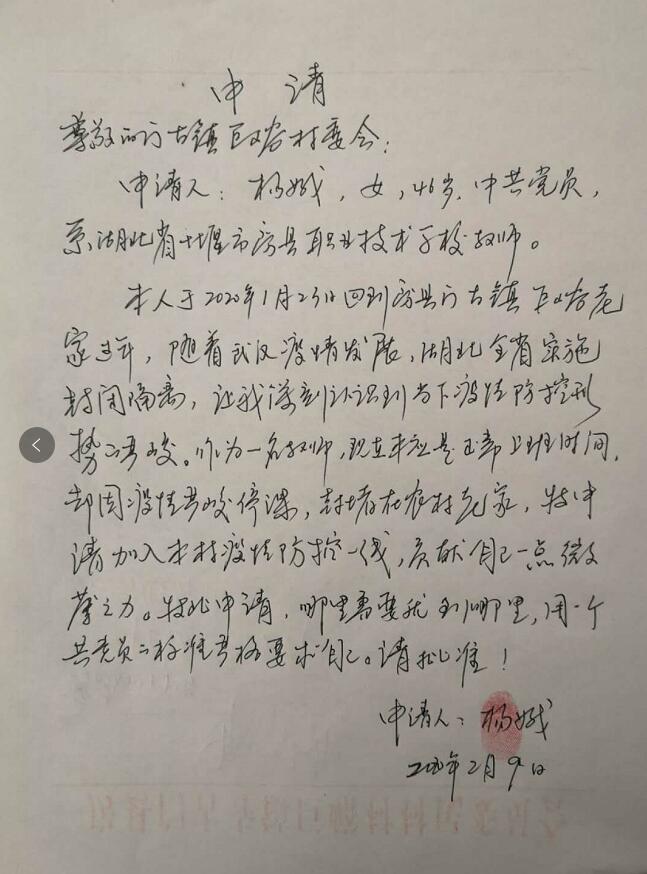 申 请
尊敬的门古镇巨峪村委会：
申请人：杨娥，女，46岁，中共党员，
系湖北省十堰市房县职业技术学校教师。
本人于2020年1月23日回到房县门古镇巨峪老
家过年，随着武汉疫情发展，湖北全省实施
封闭隔离，让我深刻认识到当下疫情防控形
势之严峻。作为一名教师，现在本应是正常上班时间，
却因疫情严峻停课，封堵在农村老家，特申
请加入本村疫情防控一线，贡献自己一点微
薄之力。特此申请，哪里需要我到哪里，用一个
共党员的标准严格要求自己。请批准！
申请人：杨娥
2020年2月9日